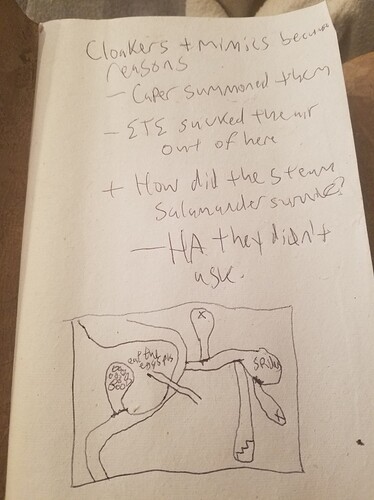 Cloakers + mimics because
reasons
- Caper summoned them
- ETE sucked the air
out of here
+ How did the steam
Salamander survive?
- HA they didn't
ask.
X
eat the
eggs pls